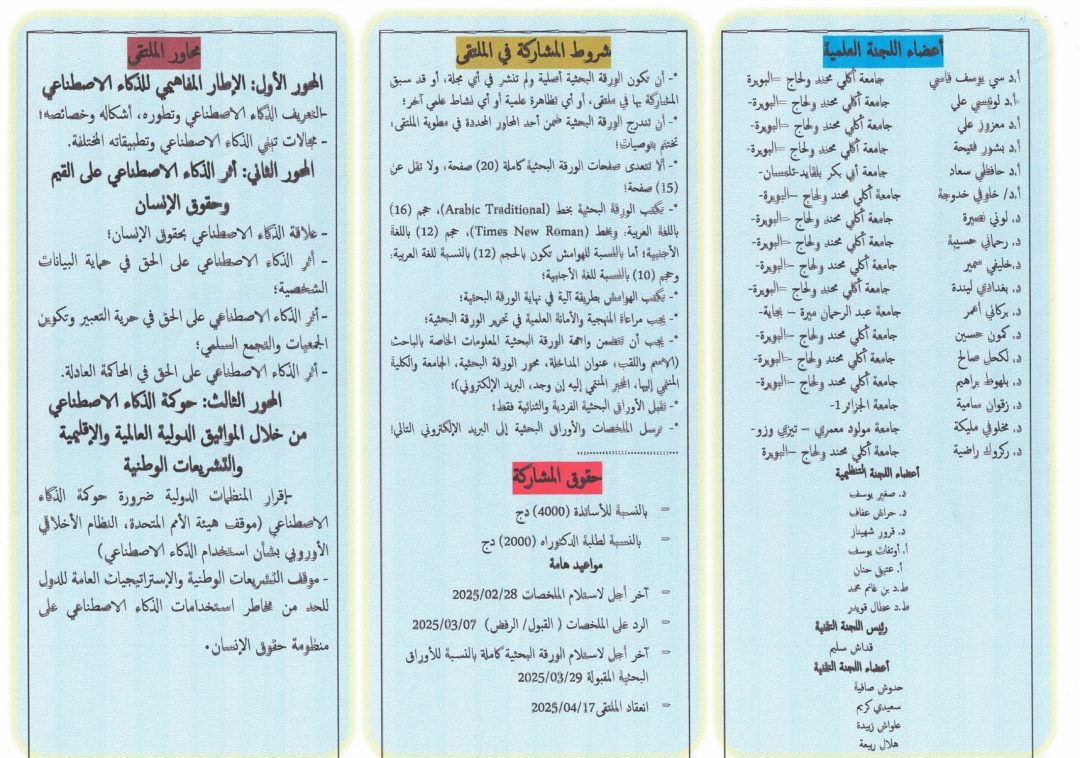 أعضاء اللجنة العلمية
أ.د سي يوسف قاسي جامعة أكلي محند ولحاج =البويرة
أ.د لونيسي علي جامعة أكلي محند ولحاج =البويرة-
أ.د معزوز علي جامعة أكلي محند ولحاج –البويرة-
أ.د بشور فتيحة جامعة أكلي محند ولحاج =البويرة-
أ.د حافظي سعاد جامعة أبي بكر بلقايد-تلمسان-
أ.د/ خلوفي خدوجة جامعة أكلي محند ولحاج –البويرة-
د. لوني نصيرة جامعة أكلي محند ولحاج =البويرة-
د. رحماني حسيبة جامعة أكلي محند ولحاج –البويرة-
د.خليفي سمير جامعة أكلي محند ولحاج –البويرة-
د. بغدادي ليندة جامعة أكلي محند ولحاج =البويرة-
د. بركاني أعمر جامعة عبد الرحمان ميرة – بجاية-
د. كمون حسين جامعة أكلي محند ولحاج –البويرة-
د. لكحل صالح جامعة أكلي محند ولحاج –البويرة-
د. بلهوط براهيم جامعة أكلي محند ولحاج –البويرة-
د. زقوان سامية جامعة الجزائر 1-
د. مخلوفي مليكة جامعة مولود معمري – تيزي وزو-
د. ركروك راضية جامعة أكلي محند ولحاج –البويرة
أعضاء اللجنة التنظيمية
د. صغير يوسف
د. حراش عفاف
د. قرور شهيناز
أ. أوتفات يوسف
أ. عتيق حنان
ط.د بن غانم محمد
ط.د عطال قويدر
رئيس اللجنة التقنية
قداش سليم
أعضاء اللجنة التقنية
حدوش صافية
سعيدي كريم
علواش زبيدة
هلال ربيعة
شروط المشاركة في الملتقى
*- أن تكون الورقة البحثية أصلية ولم تنشر في أي مجلة، أو قد سبق
المشاركة بها في ملتقى، أو أي تظاهرة علمية أو أي نشاط علمي آخر؛
*- أن تندرج الورقة البحثية ضمن أحد المحاور المحددة في مطوية الملتقى،
تختتم بتوصيات؛
*- ألا تتعدى صفحات الورقة البحثية كاملة (20) صفحة، ولا تقل عن
(15) صفحة؛
*- تكتب الورقة البحثية بخط (Arabic Traditional)، حجم (16)
باللغة العربية، وبخط (Times New Roman)، حجم (12) باللغة
الأجنبية؛ أما بالنسبة للهوامش تكون بالحجم (12) بالنسبة للغة العربية،
وحجم (10) بالنسبة للغة الأجنبية؛
*- تكتب الهوامش بطريقة آلية في نهاية الورقة البحثية؛
*- يجب مراعاة المنهجية والأمانة العلمية في تحرير الورقة البحثية؛
*- يجب أن تتضمن واجهة الورقة البحثية المعلومات الخاصة بالباحث
(الاسم واللقب؛ عنوان المداخلة، محور الورقة البحثية، الجامعة والكلية
المنتمي إليها، المخبر المنتمي إليه إن وجد، البريد الإلكتروني)؛
*- تقبل الأوراق البحثية الفردية والثنائية فقط؛
*- ترسل الملخصات والأوراق البحثية إلى البريد الإلكتروني التالي:
حقوق المشاركة
- بالنسبة للأساتذة (4000) دج
- بالنسبة لطلبة الدكتوراه (2000) دج
مواعيد هامة
- آخر أجل لاستلام الملخصات 2025/02/28
- الرد على الملخصات ( القبول/ الرفض) 2025/03/07
- آخر أجل لاستلام الورقة البحثية كاملة بالنسبة للأوراق
البحثية المقبولة 2025/03/29
- انعقاد الملتقى 2025/04/17
محاور الملتقى
المحور الأول: الإطار المفاهيمي للذكاء الاصطناعي
-التعريف الذكاء الاصطناعي وتطوره، أشكاله وخصائصه؛
- مجالات تبني الذكاء الاصطناعي وتطبيقاته المختلفة.
المحور الثاني: أثر الذكاء الاصطناعي على القيم
وحقوق الإنسان
- علاقة الذكاء الاصطناعي بحقوق الإنسان؛
- أثر الذكاء الاصطناعي على الحق في حماية البيانات
الشخصية؛
- أثر الذكاء الاصطناعي على الحق في حرية التعبير وتكوين
الجمعيات والتجمع السلمي؛
- أثر الذكاء الاصطناعي على الحق في المحاكمة العادلة.
المحور الثالث: حوكمة الذكاء الاصطناعي
من خلال المواثيق الدولية العالمية والإقليمية
والتشريعات الوطنية
-إقرار المنظمات الدولية ضرورة حوكمة الذكاء
الاصطناعي (موقف هيئة الأمم المتحدة، النظام الأخلاقي
الأوروبي بشأن استخدام الذكاء الاصطناعي)
- موقف التشريعات الوطنية والإستراتيجيات العامة للدول
للحد من مخاطر استخدامات الذكاء الاصطناعي على
منظومة حقوق الإنسان.